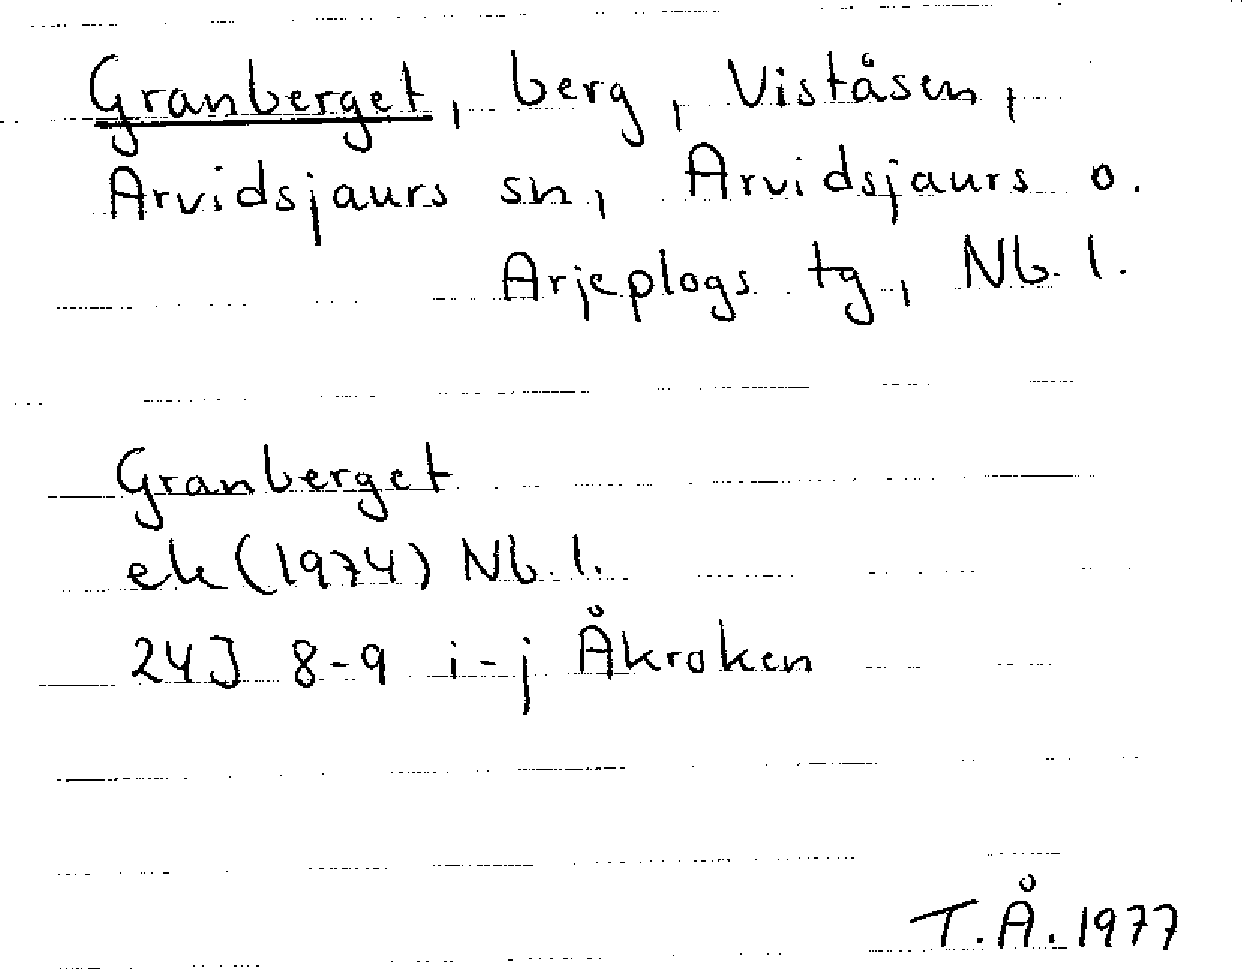 Granberget, berg, Viståsen,
Arvidsjaurs sn, Arvidsjaurs o.
Arjeplogs tg, Nb. l.
Granberget
ek (1974) Nb. l.
24J 8-9 i-j Åkroken
T.Å. 1977